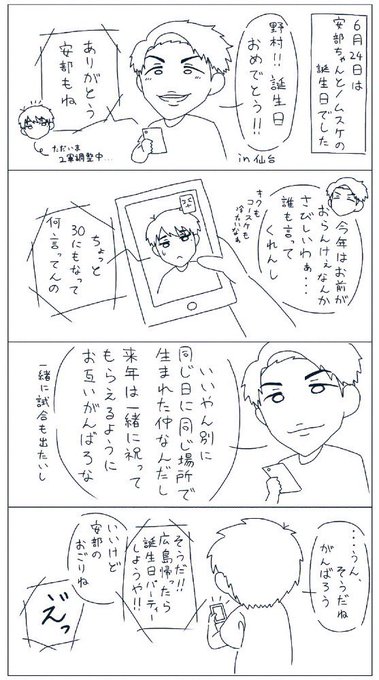 6月24日は
安部ちゃんとノムスケの
誕生日でした
野村!!誕生日
おめでとう!!
in仙台
ありがとう
安部もね
ただいま
2軍調整中…
今年はお前が
おらんけぇなんか
さびしいわぁ…
誰も言って
くれんし
キクも
コースケも
冷たいなぁ
ちょっと
30にもなって
何言ってんの
いいやん別に
同じ日に同じ場所で
生まれた仲なんだし
来年は一緒に祝って
もらえるように
お互いがんばろな
一緒に試合も出たいし
…うん、
そうだね
がんばろう
そうだ!!
広島帰ったら
誕生日パーティー
しようや!!
いいけど
安部の
おごりね
え゛っ